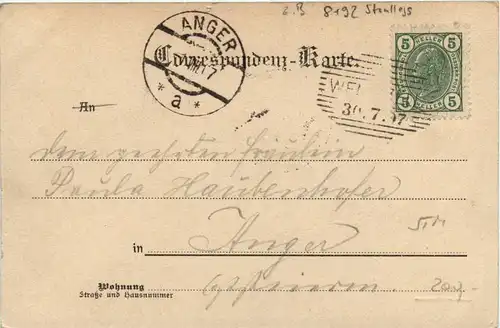 z.B 8192 Strallegg
ANGER
*a*
Correspondenz-Karte.
5 5
HELLER
5 5
WEI
30.7.07
An
dem geehrten Fräulein
Paula Haubenhofer
in Anger
Wohnung
Straße und Hausnummer